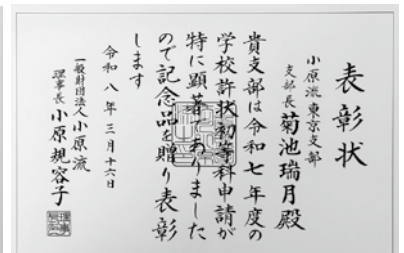 表彰状
小原流東京支部
支部長 菊池瑞月殿
貴支部は令和七年度の
学校許状初等科申請が
特に顕著でありました
ので記念品を贈り表彰
します
令和八年三月十六日
一般財団法人 小原流
理事長 小原規容子